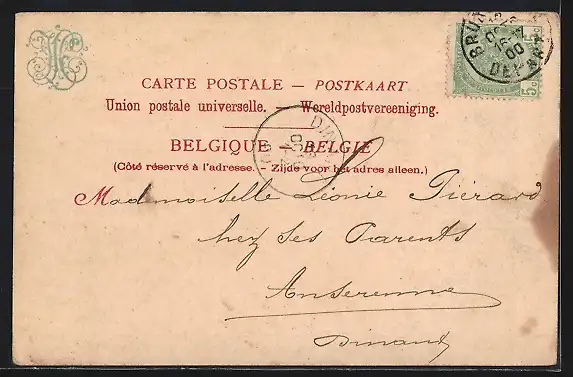 CARTE POSTALE — POSTKAART
Union postale universelle. — Wereldpostvereeniging.
BELGIQUE — BELGIE
(Côté réservé à l'adresse. - Zijde voor het adres alleen.)
Mademoiselle Léonie Piérard
chez ses Parents
Anseremme
Dinant